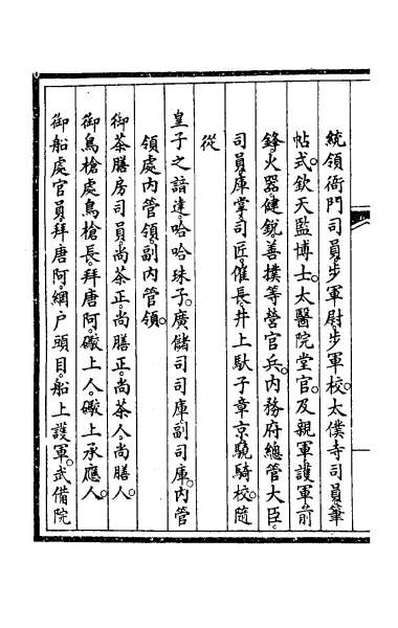 統領衙門司員步軍尉步軍校太僕寺司員筆
帖式欽天監博士太醫院堂官及親軍護軍前
鋒火器健銳善撲等營官兵內務府總管大臣
司員庫掌司匠催長井上馱子章京驍騎校隨
從
皇子之諳達哈哈珠子廣儲司司庫副司庫內管
領處內管領副內管領
御茶膳房司員尚茶正尚膳正尚茶人尚膳人
御鳥槍處鳥槍長拜唐阿礮上人礮上承應人
御船處官員拜唐阿網户頭目船上護軍武備院